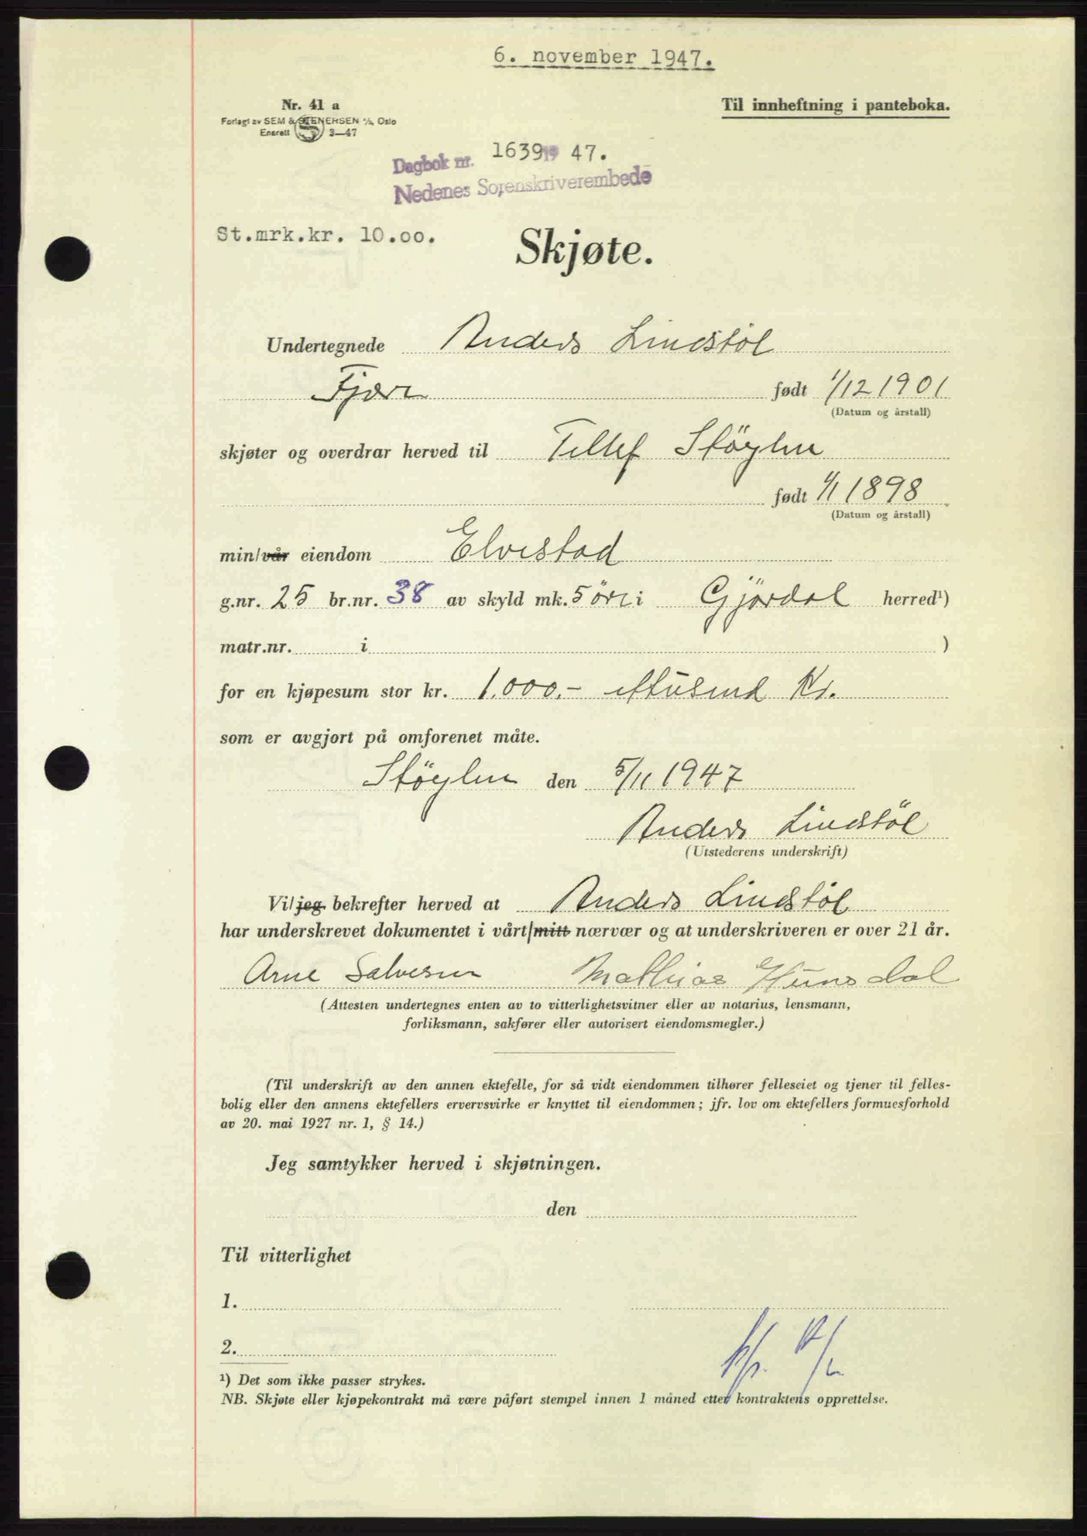 6. november 1947.
Nr. 41 a
Til innheftning i panteboka.
Forlagt av SEM & STENERSEN A/S, Oslo
Enerett 3—47
Dagbok nr. 1639 19 47.
Nedenes Sorenskriverembede
St.mrk.kr. 10.oo.
Skjøte.
Undertegnede Anders Lindstøl
Fjære født 1/12 1901
(Datum og årstall)
skjøter og overdrar herved til Tellef Stöylen
født 1898
(Datum og årstall)
min/vår eiendom Elvestad
g.nr. 25 br.nr. 38 av skyld mk. 5 öre i Gjövdal herred¹)
matr.nr. i )
for en kjøpesum stor kr. 1.000.- ettusend Kr.
som er avgjort på omforenet måte.
Stöylen den 5/11 1947
Anders Lindstöl
(Utstederens underskrift)
Vi/jeg bekrefter herved at Anders Lindstøl
har underskrevet dokumentet i vårt/mitt nærvær og at underskriveren er over 21 år.
Arne Salvesen Mathias Hunsdal
(Attesten undertegnes enten av to vitterlighetsvitner eller av notarius, lensmann,
forliksmann, sakfører eller autorisert eiendomsmegler.)
(Til underskrift av den annen ektefelle, for så vidt eiendommen tilhører felleseiet og tjener til felles-
bolig eller den annens ektefellers ervervsvirke er knyttet til eiendommen; jfr. lov om ektefellers formuesforhold
av 20. mai 1927 nr. 1, § 14.)
Jeg samtykker herved i skjøtningen.
den
Til vitterlighet
1.
2.
¹) Det som ikke passer strykes.
NB. Skjøte eller kjøpekontrakt må være påført stempel innen 1 måned etter kontraktens opprettelse.